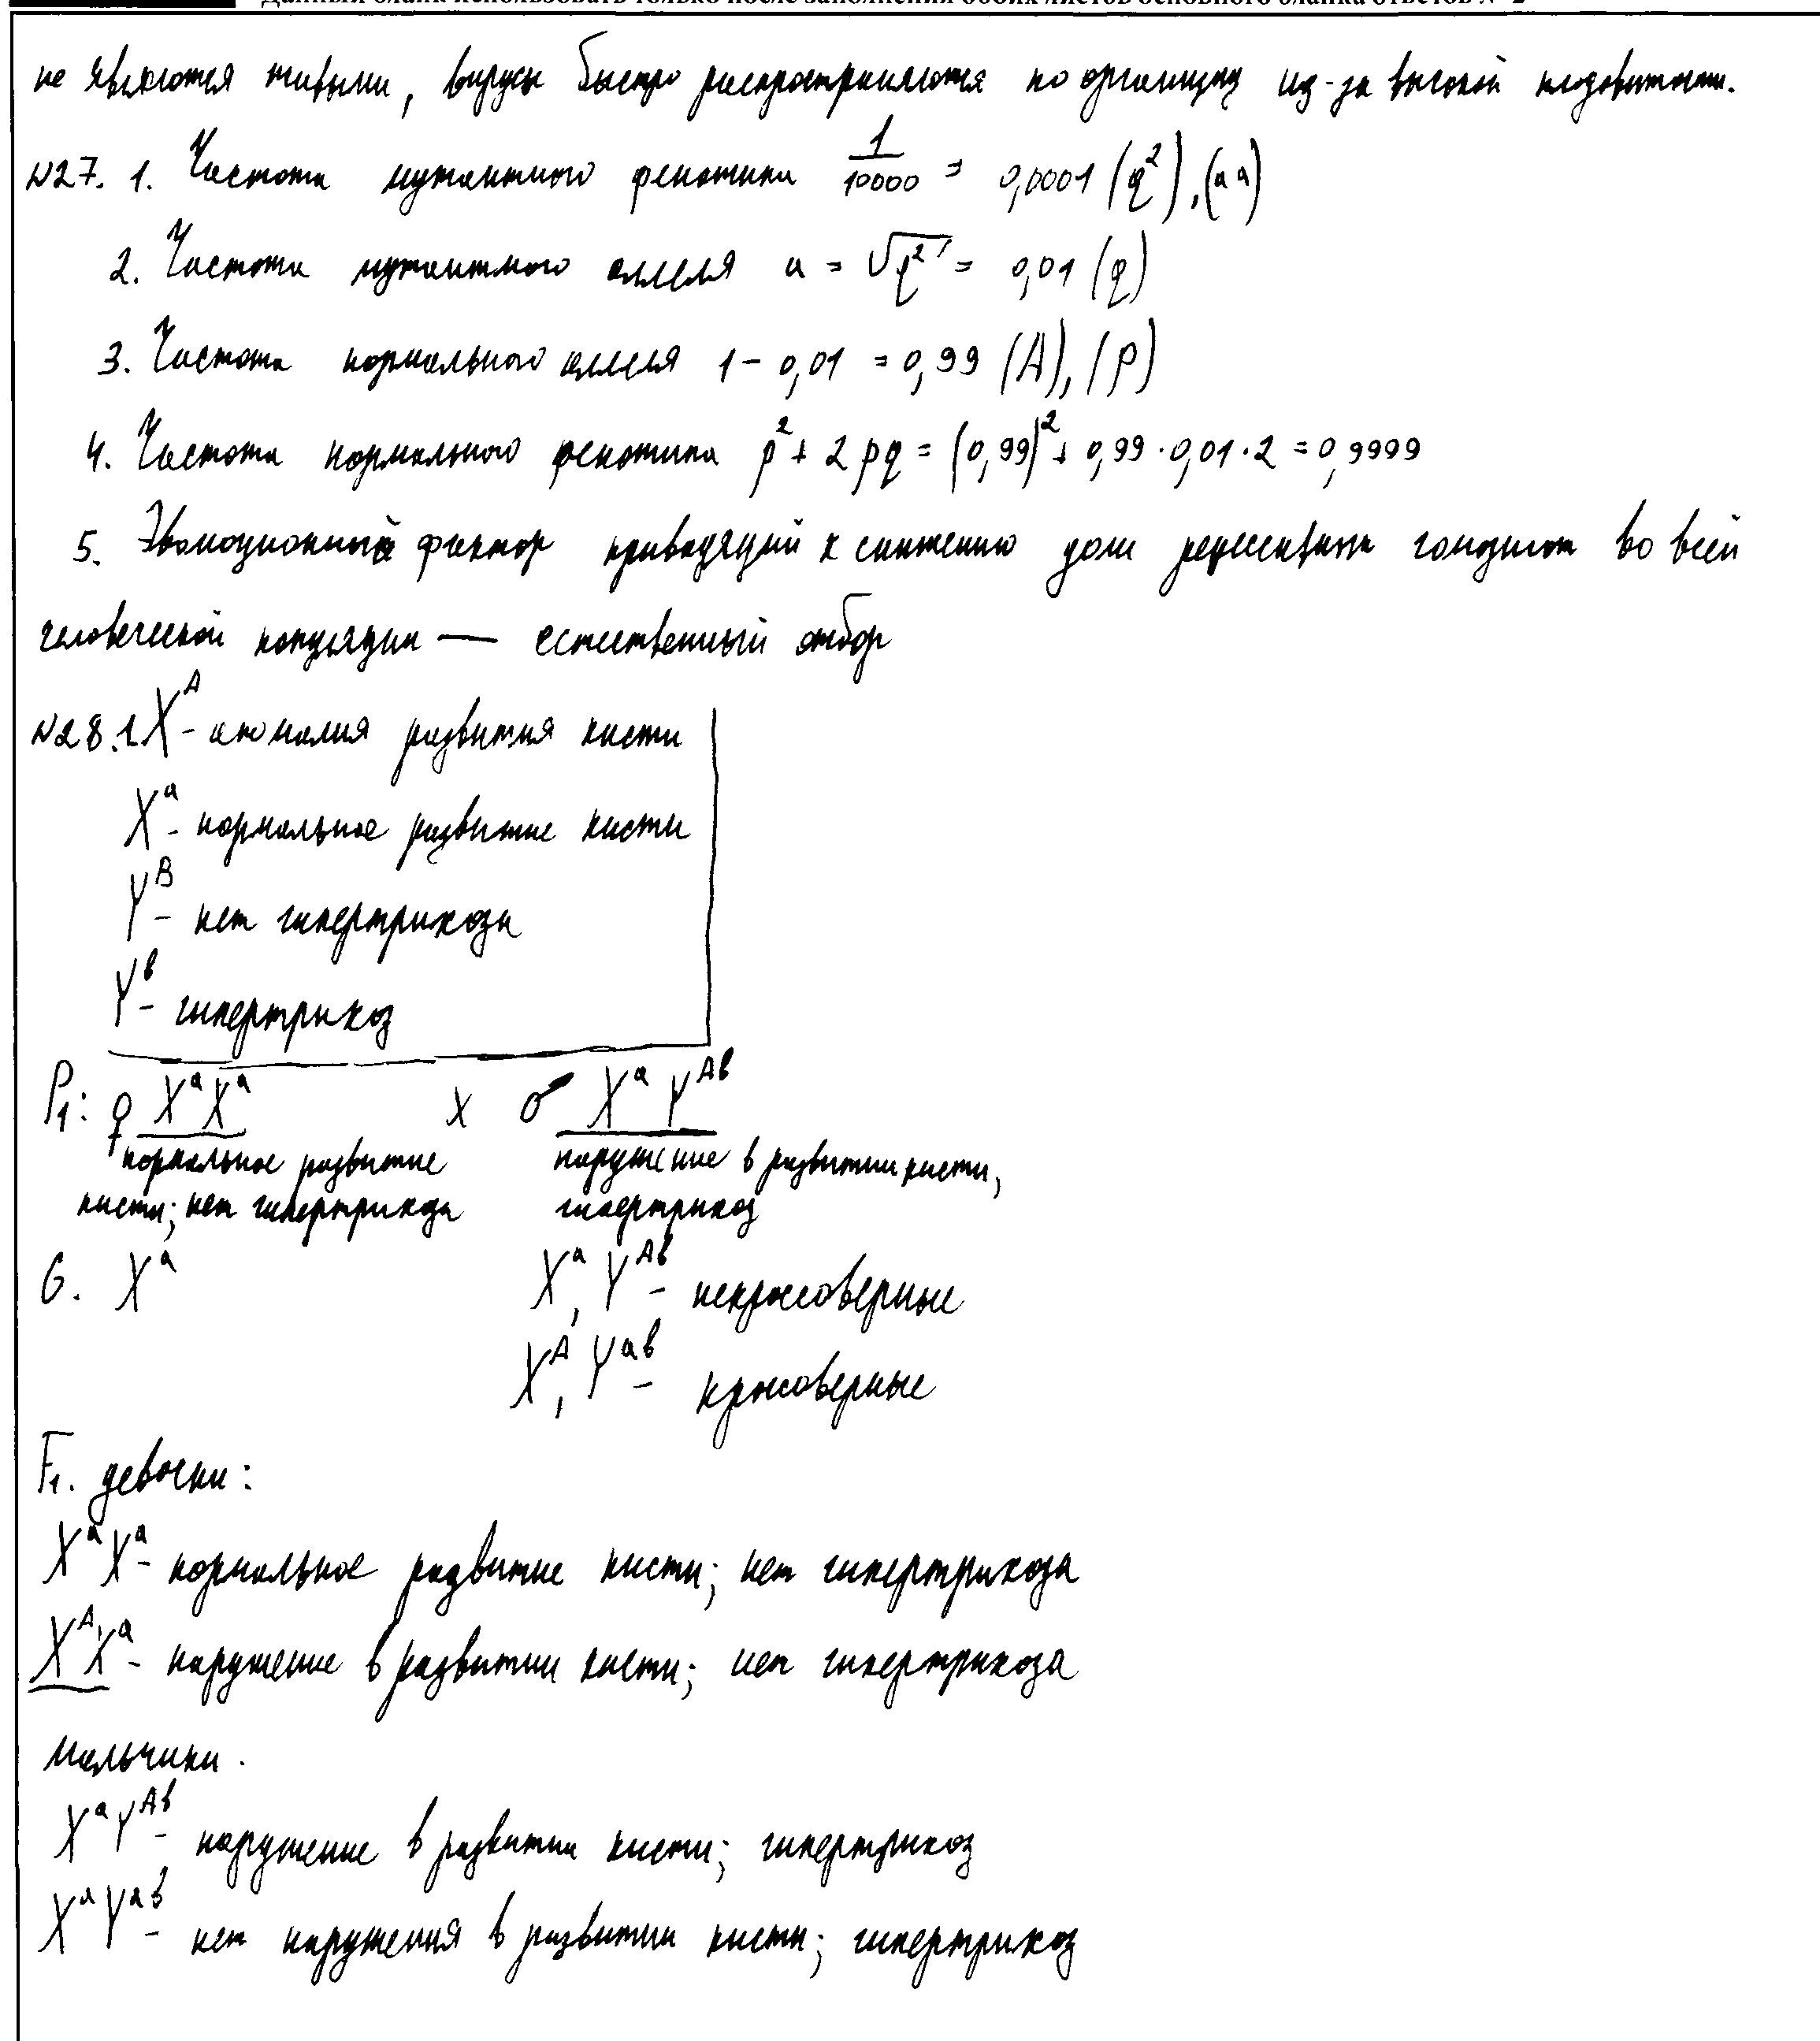 Данный бланк использовать только после заполнения обоих листов основного бланка ответов № 2
не являются живыми, вирусы быстро распространяются по организму из-за высокой плодовитости.
№27. 1. Частота мутантного фенотипа 1/10000 = 0,0001 (q²), (aa)
2. Частота мутантного аллеля a = √q² = 0,01 (q)
3. Частота нормального аллеля 1 - 0,01 = 0,99 (A), (p)
4. Частота нормального фенотипа p² + 2pq = (0,99)² + 0,99 · 0,01 · 2 = 0,9999
5. Эволюционный фактор приводящий к снижению доли рецессивных гомозигот во всей
человеческой популяции — естественный отбор
№28.1. Xᴬ - аномалия развития кисти
Xᵃ - нормальное развитие кисти
Yᴮ - нет гипертрихоза
Yᵇ - гипертрихоз
P₁: ♀ XᵃXᵃ x ♂ XᵃYᴬᵇ
нормальное развитие кисти; нет гипертрихоза
нарушение в развитии кисти, гипертрихоз
G. Xᵃ Xᵃ, Yᴬᵇ - некроссоверные
Xᴬ, Yᵃᵇ - кроссоверные
F₁. девочки:
XᵃXᵃ - нормальное развитие кисти; нет гипертрихоза
XᴬXᵃ - нарушение в развитии кисти; нет гипертрихоза
мальчики.
XᵃYᴬᵇ - нарушение в развитии кисти; гипертрихоз
XᵃYᵃᵇ - нет нарушения в развитии кисти; гипертрихоз